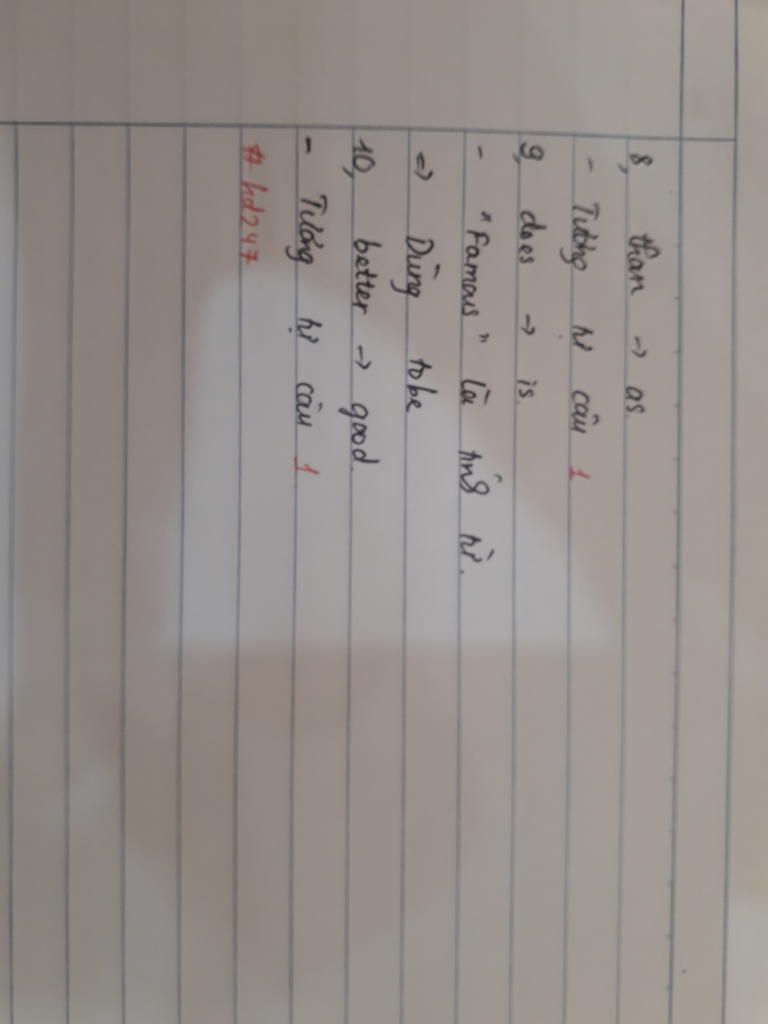 8, than → as.
- Tương tự câu 1
9, does → is.
- "famous" là tính từ.
=> Dùng tobe
10, better → good.
- Tương tự câu 1
# hd247